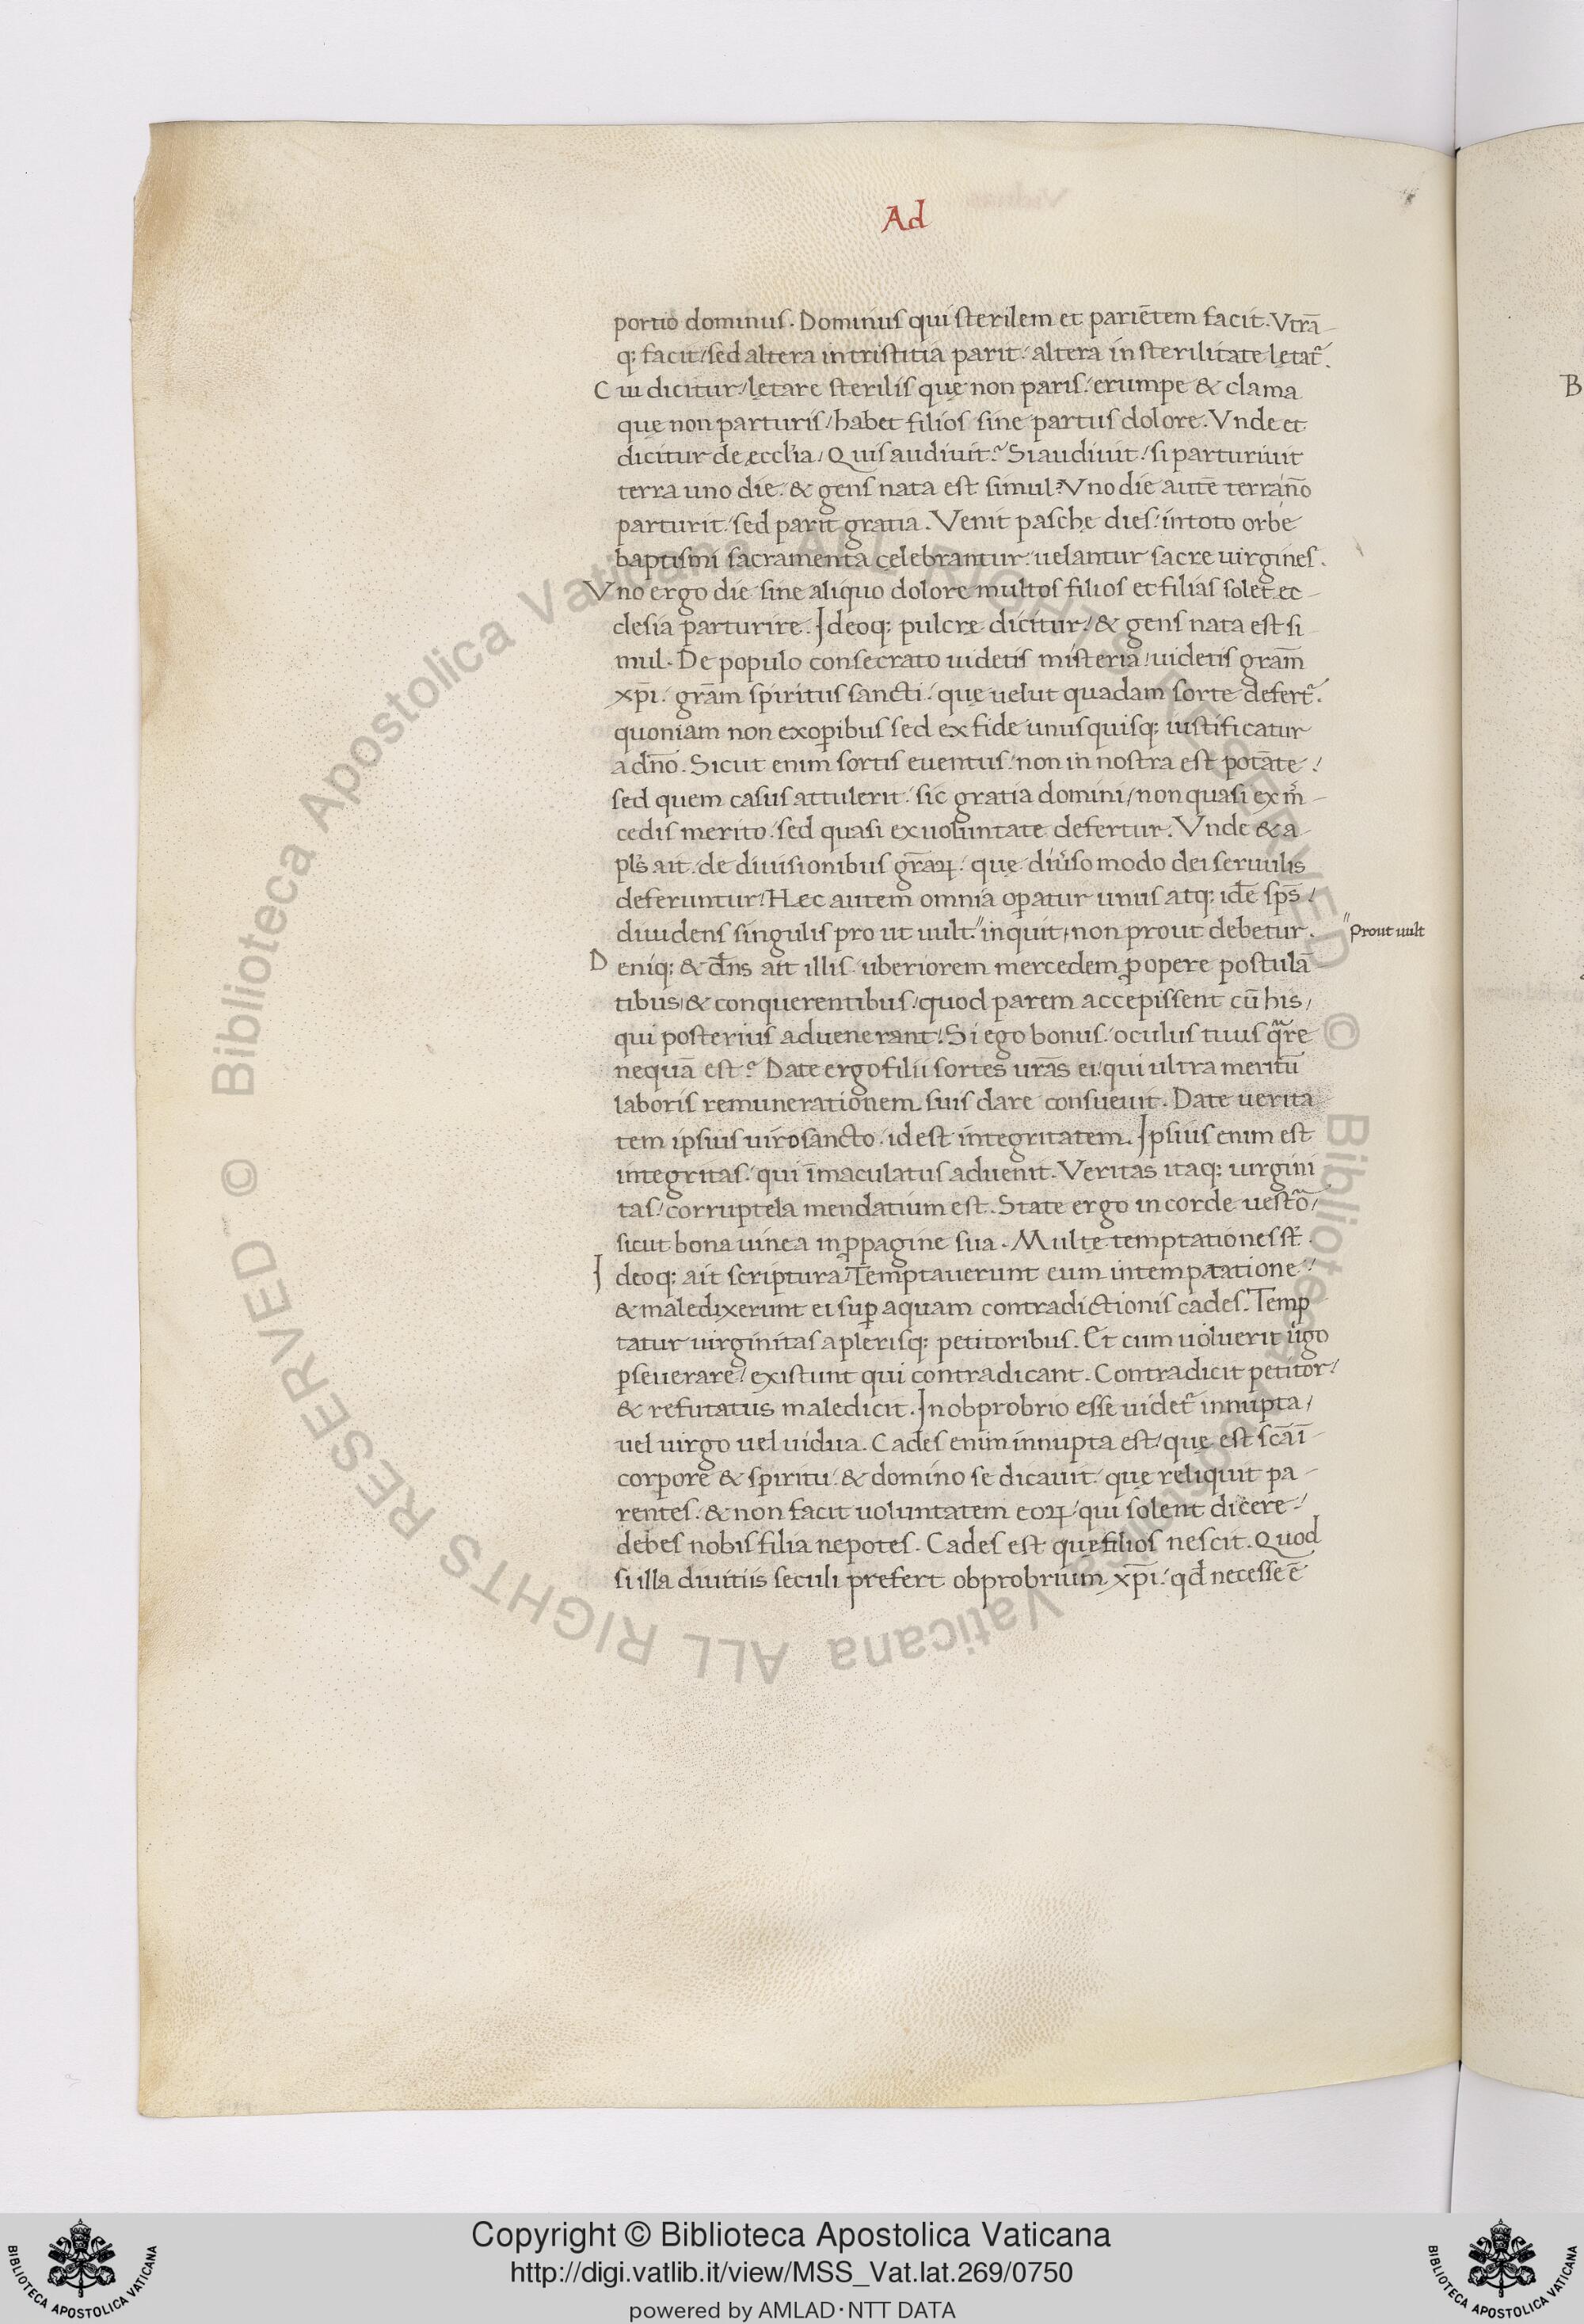 Ad
portio dominus. Dominus qui sterilem et pariētem facit. Vtrā-
q: facit/ sed altera in tristitia parit/ altera in sterilitate lętat᷑.
Cui dicitur/ lętare sterilis quę non paris/ erumpe & clama
quę non parturis/ habet filios sine partus dolore. Vnde et
dicitur de ęccl̄ia/ Quis audiuit? Si audiuit/ si parturiuit
terra uno die/ & gens nata est simul? Vno die autē terra n̄o
parturit/ sed parit gratia. Venit paschę dies/ in toto orbe
baptismi sacramenta celebrantur/ uelantur sacre uirgines.
Vno ergo die sine aliquo dolore multos filios et filias solet ec-
clesia parturire. Ideoq: pulcre dicitur/ & gens nata est si
mul. De populo consecrato uidetis misteria/ uidetis grām
xp̄i/ grām spiritus sancti/ quę uelut quadam sorte defert᷑.
quoniam non ex oꝑibus sed ex fide unusquisq: iustificatur
a dn̄o. Sicut enim sortis euentus/ non in nostra est potāte/
sed quem casus attulerit/ sic gratia domini/ non quasi ex m̄-
cedis merito/ sed quasi ex uoluntate defertur. Vnde & a
pl̄s ait/ de diuisionibus grāꝝ/ quę diu̾so modo dei seruulis
deferuntur/ Hec autem omnia oꝑatur unus atq: idē sp̄s/
diuidens singulis pro ut uult." inquit/ non prout debetur.
" Prout uult
Deniq: & dn̄s ait illis/ uberiorem mercedem ꝓ opere postulā-
tibus/ & conquerentibus/ quod parem accepissent cū his/
qui posterius aduenerant/ Si ego bonus/ oculus tuus q̄re
nequā est? Date ergo filii sortes urās ei/ qui ultra meritū
laboris remunerationem suis dare consueuit. Date uerita
tem ipsius uiro sancto/ id est integritatem. Ipsius enim est
integritas/ qui īmaculatus aduenit. Veritas itaq: uirgini
tas/ corruptela mendatium est. State ergo in corde uestrō/
sicut bona uinea in ꝓpagine sua. Multę temptationes st̄.
Ideoq: ait scriptura/ Temptauerunt eum in temptatione/
& maledixerunt ei suꝑ aquam contradictionis cades. Temp
tatur uirginitas a plerisq: petitoribus. Et cum uoluerit u̾go
ꝑseuerare/ existunt qui contradicant. Contradicit petitor/
& refutatus maledicit. In obprobrio esse uidet᷑ innupta/
uel uirgo uel uidua. Cades enim innupta est/ quę est scā ī
corpore & spiritu/ & domino se dicauit/ quę reliquit pa-
rentes/ & non facit uoluntatem eoꝝ/ qui solent dicere/
debes nobis filia nepotes. Cades est quę filios nescit. Quod
si illa diuitiis seculi prefert obprobrium xp̄i/ qd̄ necesse ē
B
Copyright © Biblioteca Apostolica Vaticana
http://digi.vatlib.it/view/MSS_Vat.lat.269/0750
powered by AMLAD·NTT DATA
BIBLIOTECA APOSTOLICA VATICANA
BIBLIOTECA APOSTOLICA VATICANA
© Biblioteca Apostolica Vaticana ALL RIGHTS RESERVED © Biblioteca Apostolica Vaticana ALL RIGHTS RESERVED